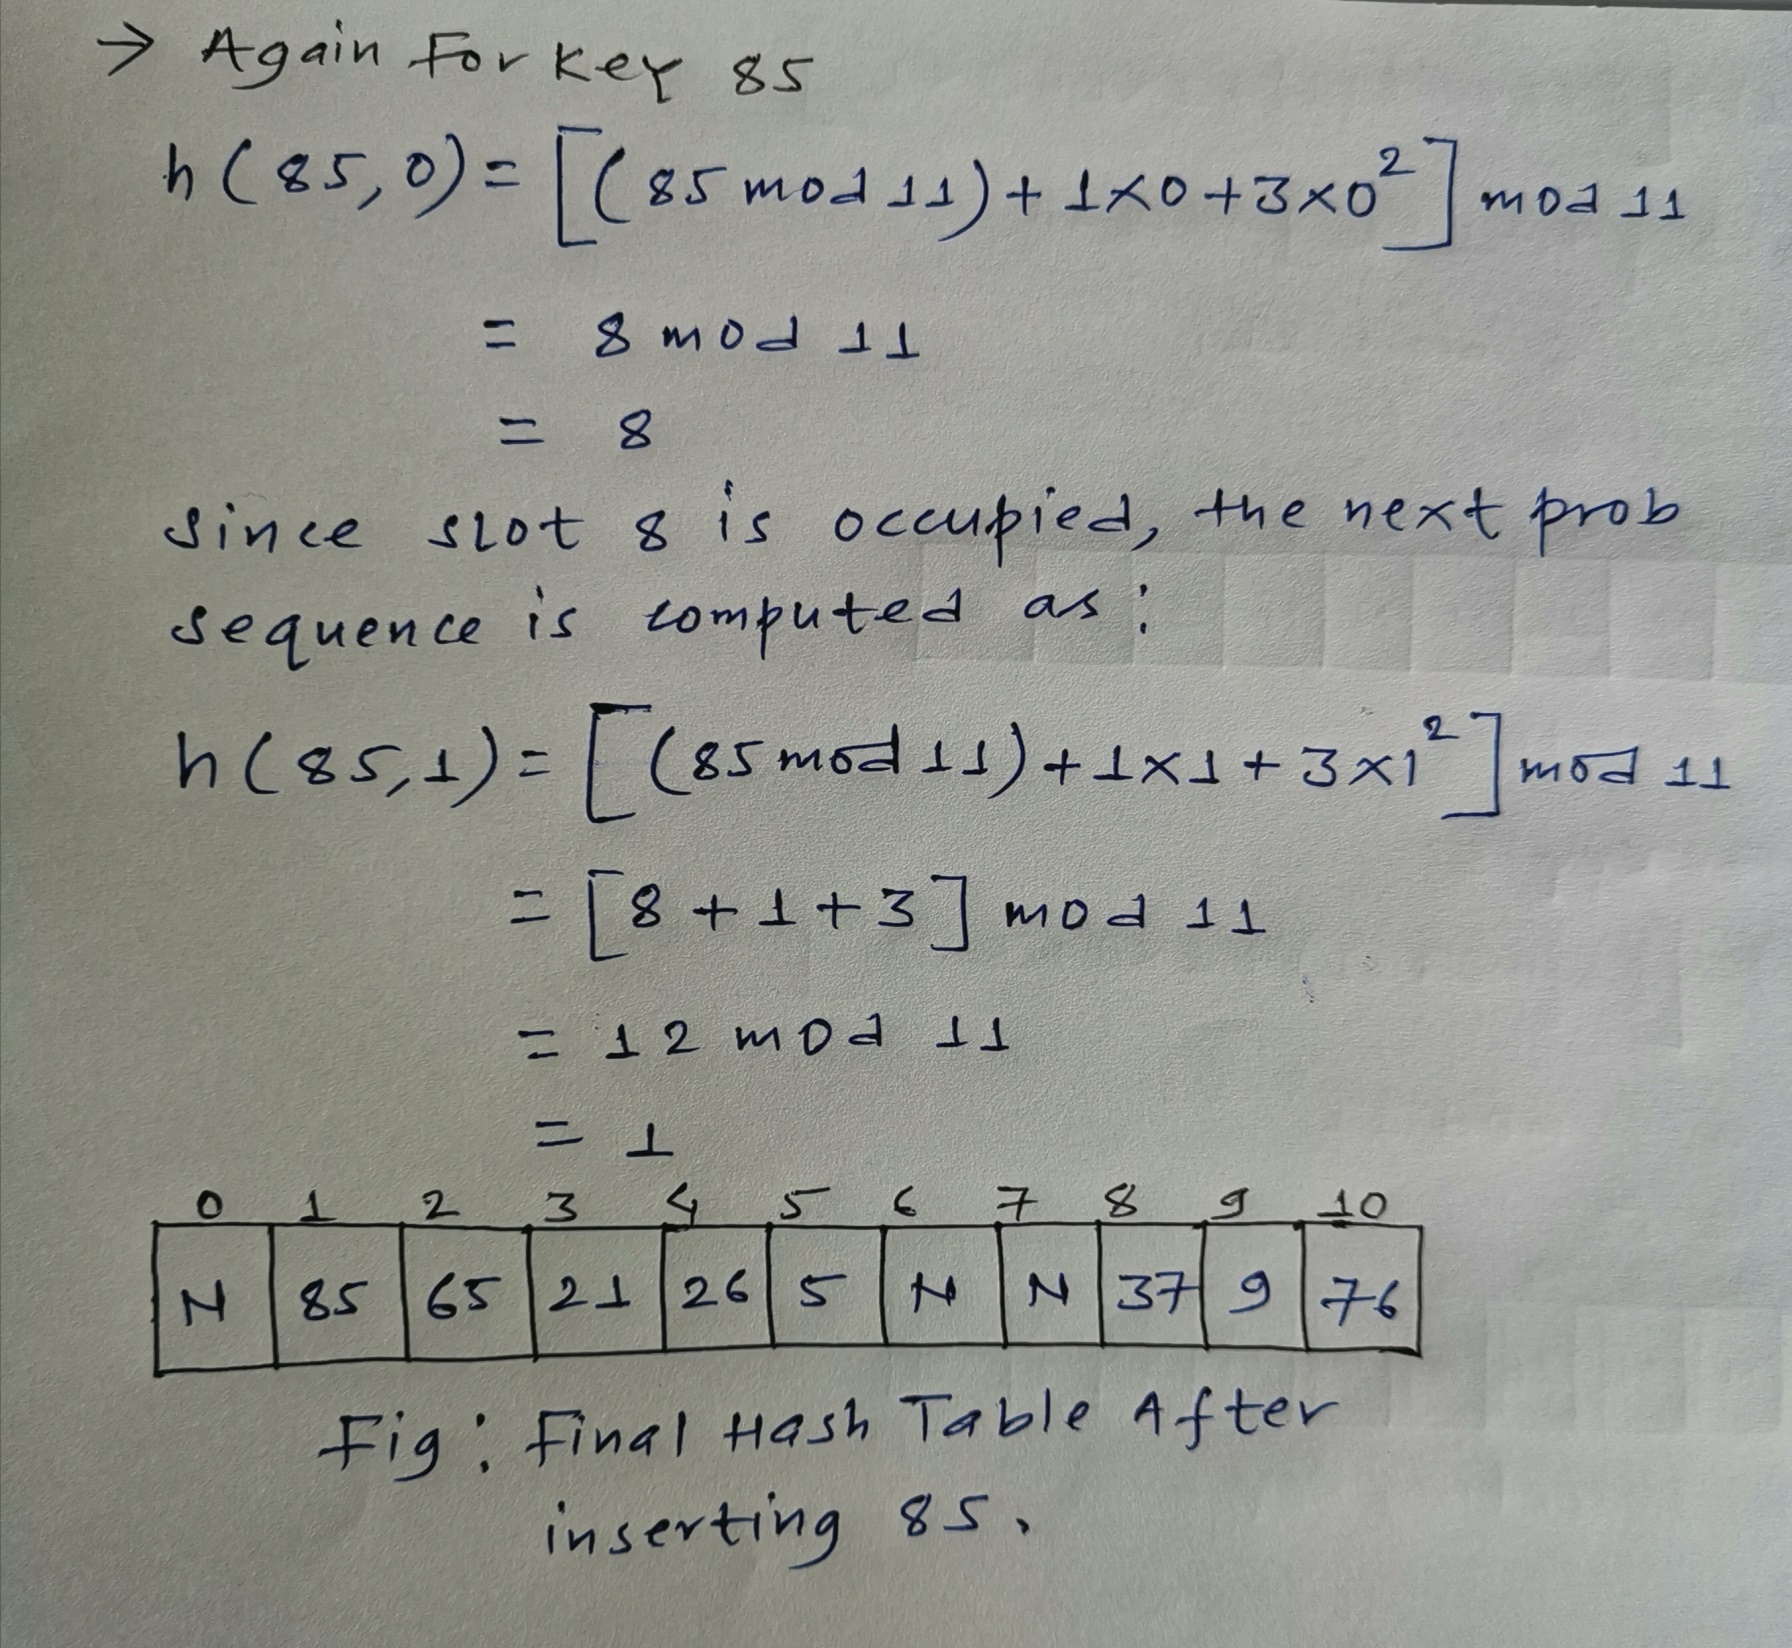 → Again For Key 85
h(85,0) = [(85 mod 11) + 1×0 + 3×0²] mod 11
= 8 mod 11
= 8
Since slot 8 is occupied, the next prob
sequence is computed as:
h(85,1) = [(85 mod 11) + 1×1 + 3×1²] mod 11
= [8 + 1 + 3] mod 11
= 12 mod 11
= 1
0 1 2 3 4 5 6 7 8 9 10
N 85 65 21 26 5 N N 37 9 76
Fig: Final Hash Table After
inserting 85.